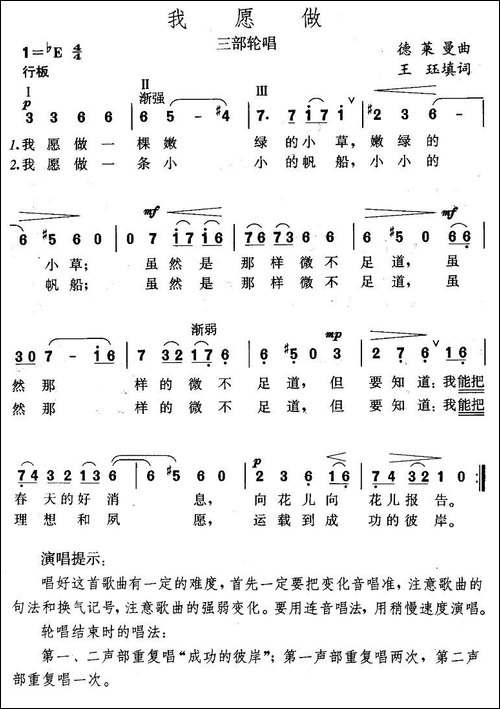 我愿做
三部轮唱
1=♭E 4/4
德莱曼曲
行板
王珏填词
Ⅰ Ⅱ Ⅲ
p 渐强
3 3 6 6 | 6 5 - #4 | 7· 7 1 7 1 ∨ | #2 3 6 - |
1.我愿做一棵嫩绿的小草，嫩绿的
2.我愿做一条小小的帆船，小小的
mf mf
6 #5 6 0 | 0 7 1 7 1 6 | 7 6 7 3 6 6 | 6 #5 0 6 6 |
小草；虽然是那样微不足道，虽
帆船；虽然是那样微不足道，虽
渐弱 mp
3 0 7 - 1 6 | 7 3 2 1 7 6 | 6 #5 0 3 | 2 7 6 ∨ 1 6 |
然那样的微不足道，但要知道：我能把
然那样的微不足道，但要知道：我能把
p
7 4 3 2 1 3 | 6 #5 6 0 | 2 3 6 1 6 | 7 4 3 2 1 7 6 0 :‖
春天的好消息，向花儿向花儿报告。
理想和夙愿，运载到成功的彼岸。
演唱提示：
唱好这首歌曲有一定的难度，首先一定要把变化音唱准，注意歌曲的
句法和换气记号，注意歌曲的强弱变化。要用连音唱法，用稍慢速度演唱。
轮唱结束时的唱法：
第一、二声部重复唱“成功的彼岸”；第一声部重复唱两次，第二声
部重复唱一次。